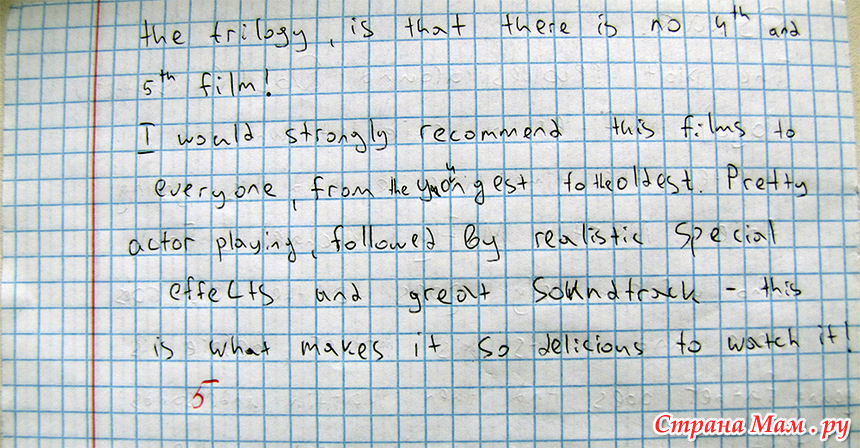 the trilogy, is that there is no 4th and
5th film!
I would strongly recommend this films to
everyone, from the youngest to the oldest. Pretty
actor playing, followed by realistic special
effects and great soundtrack - this
is what makes it so delicious to watch it!
5
Страна Мам.ру